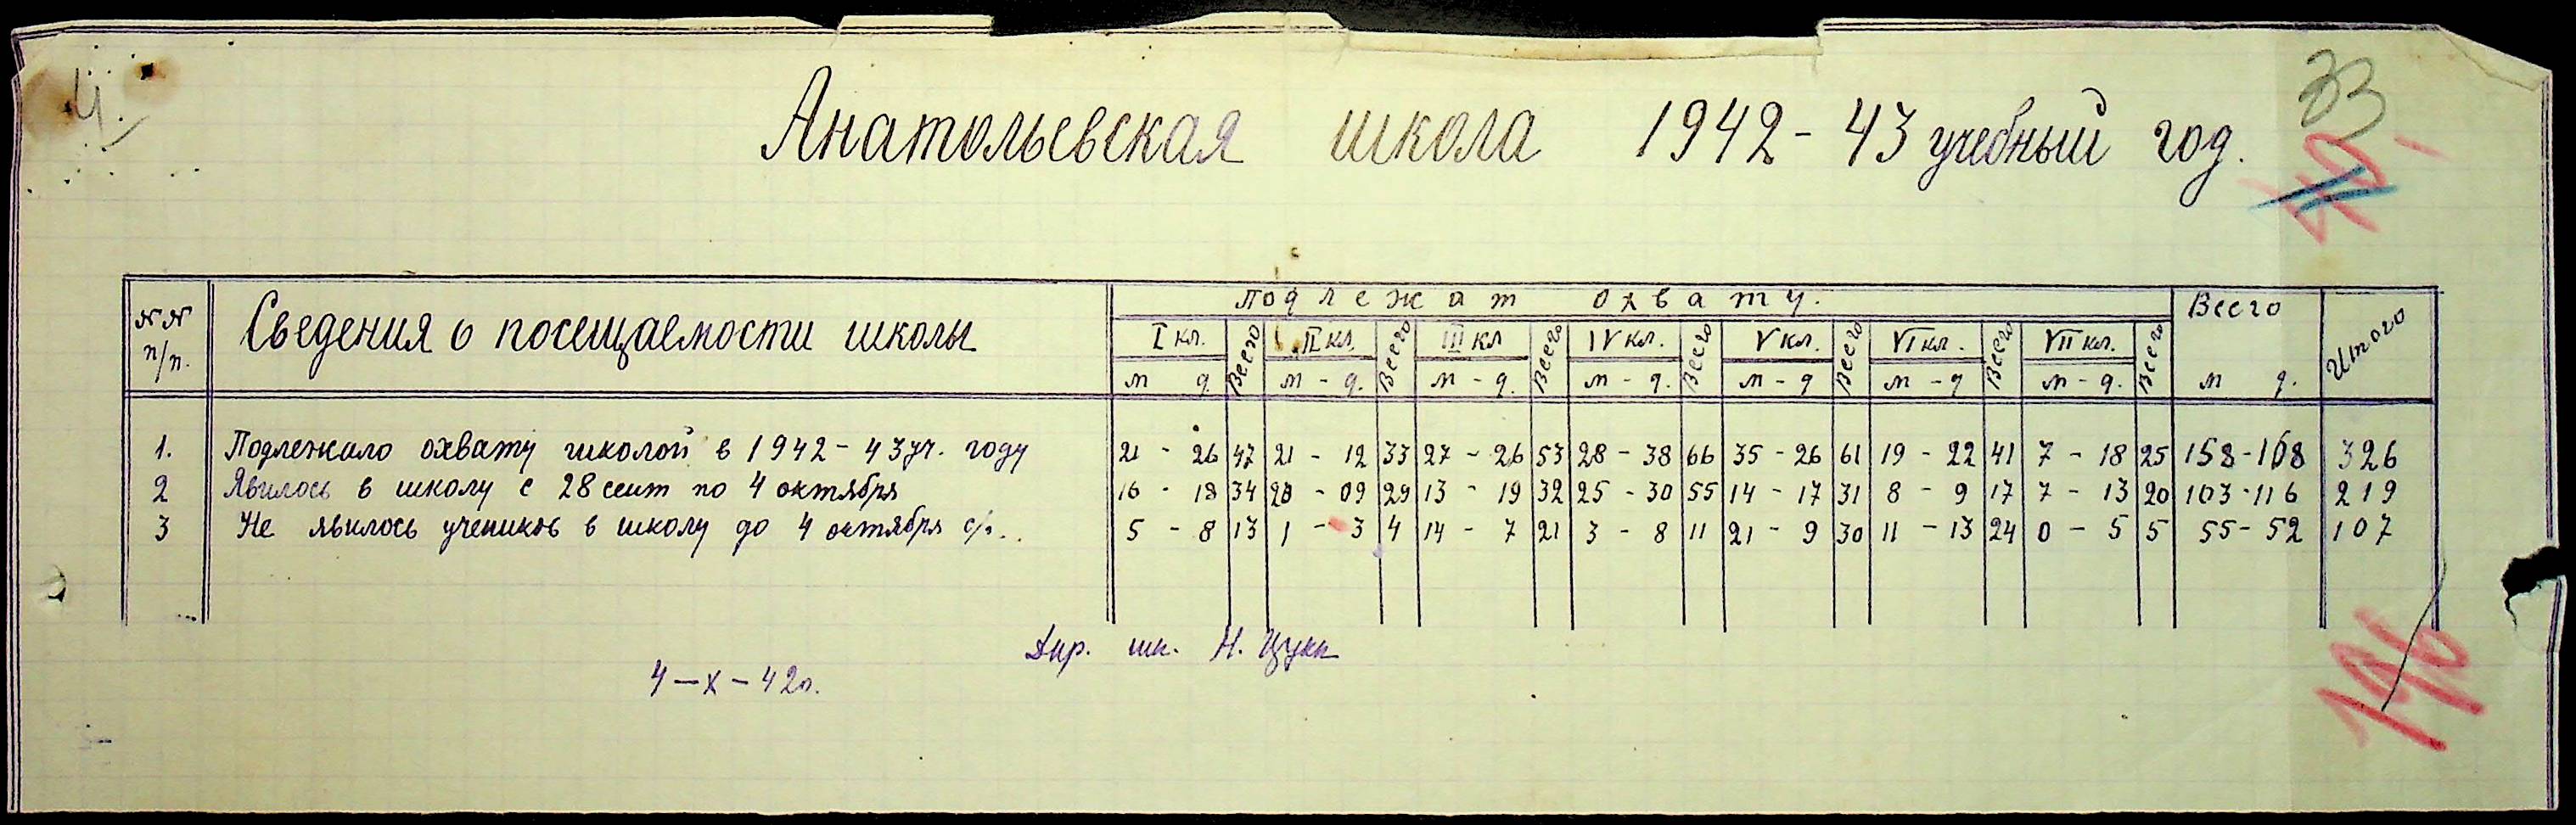 33
4.
Анатольевская школа 1942-43 учебный год.
№№ п/п. Сведения о посещаемости школы Подлежат охвату. Всего Итого
I кл. Всего II кл. Всего III кл Всего IV кл. Всего V кл. Всего VI кл. Всего VII кл. Всего
м д м - д. м - д. м - д. м - д м - д м - д. м д.
1. Подлежало охвату школой в 1942-43 уч. году 21 - 26 47 21 - 12 33 27 - 26 53 28 - 38 66 35 - 26 61 19 - 22 41 7 - 18 25 158-168 326
2 Явилось в школу с 28 сент по 4 октября 16 - 18 34 20 - 09 29 13 - 19 32 25 - 30 55 14 - 17 31 8 - 9 17 7 - 13 20 103-116 219
3 Не явилось учеников в школу до 4 октября с/г. 5 - 8 13 1 - 3 4 14 - 7 21 3 - 8 11 21 - 9 30 11 - 13 24 0 - 5 5 55-52 107
Дир. шк. Н. Цукк
4-X-42г.
196